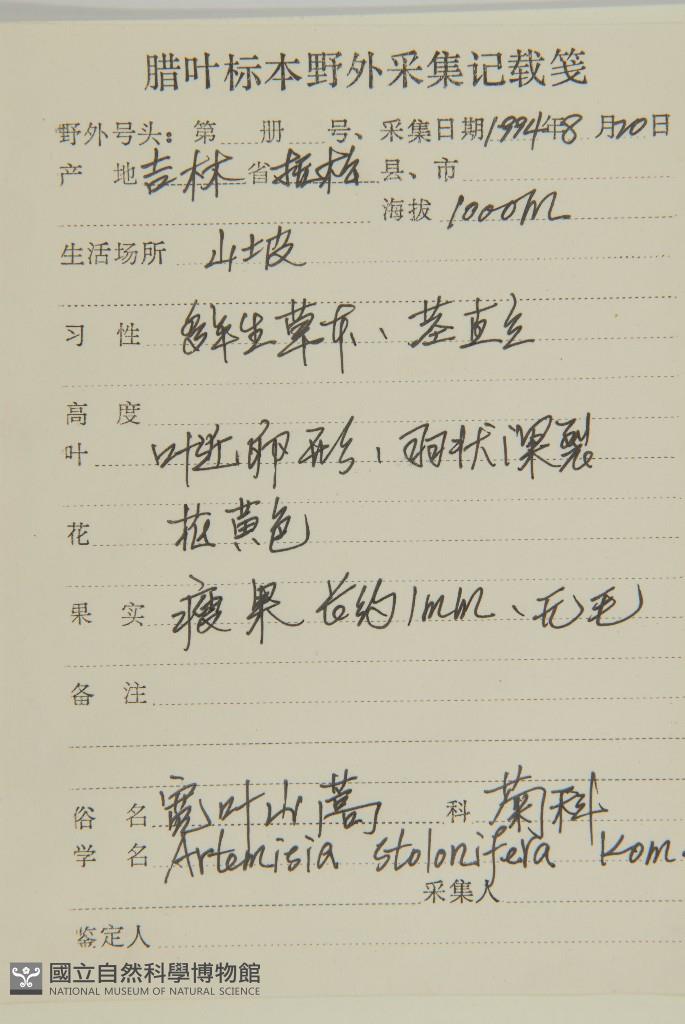 腊叶标本野外采集记载笺
野外号头：第 册 号、采集日期1994年8月20日
产 地 吉林 省 县、市
海拔 1000m
生活场所 山坡
习 性 多年生草本、茎直立
高 度
叶 叶近卵形、羽状深裂
花 黄色
果 实 瘦果长约1mm、无毛
备 注
俗 名 宽叶山蒿 科 菊科
学 名 Artemisia stolonifera Kom.
采集人
鉴定人
國立自然科學博物館
NATIONAL MUSEUM OF NATURAL SCIENCE